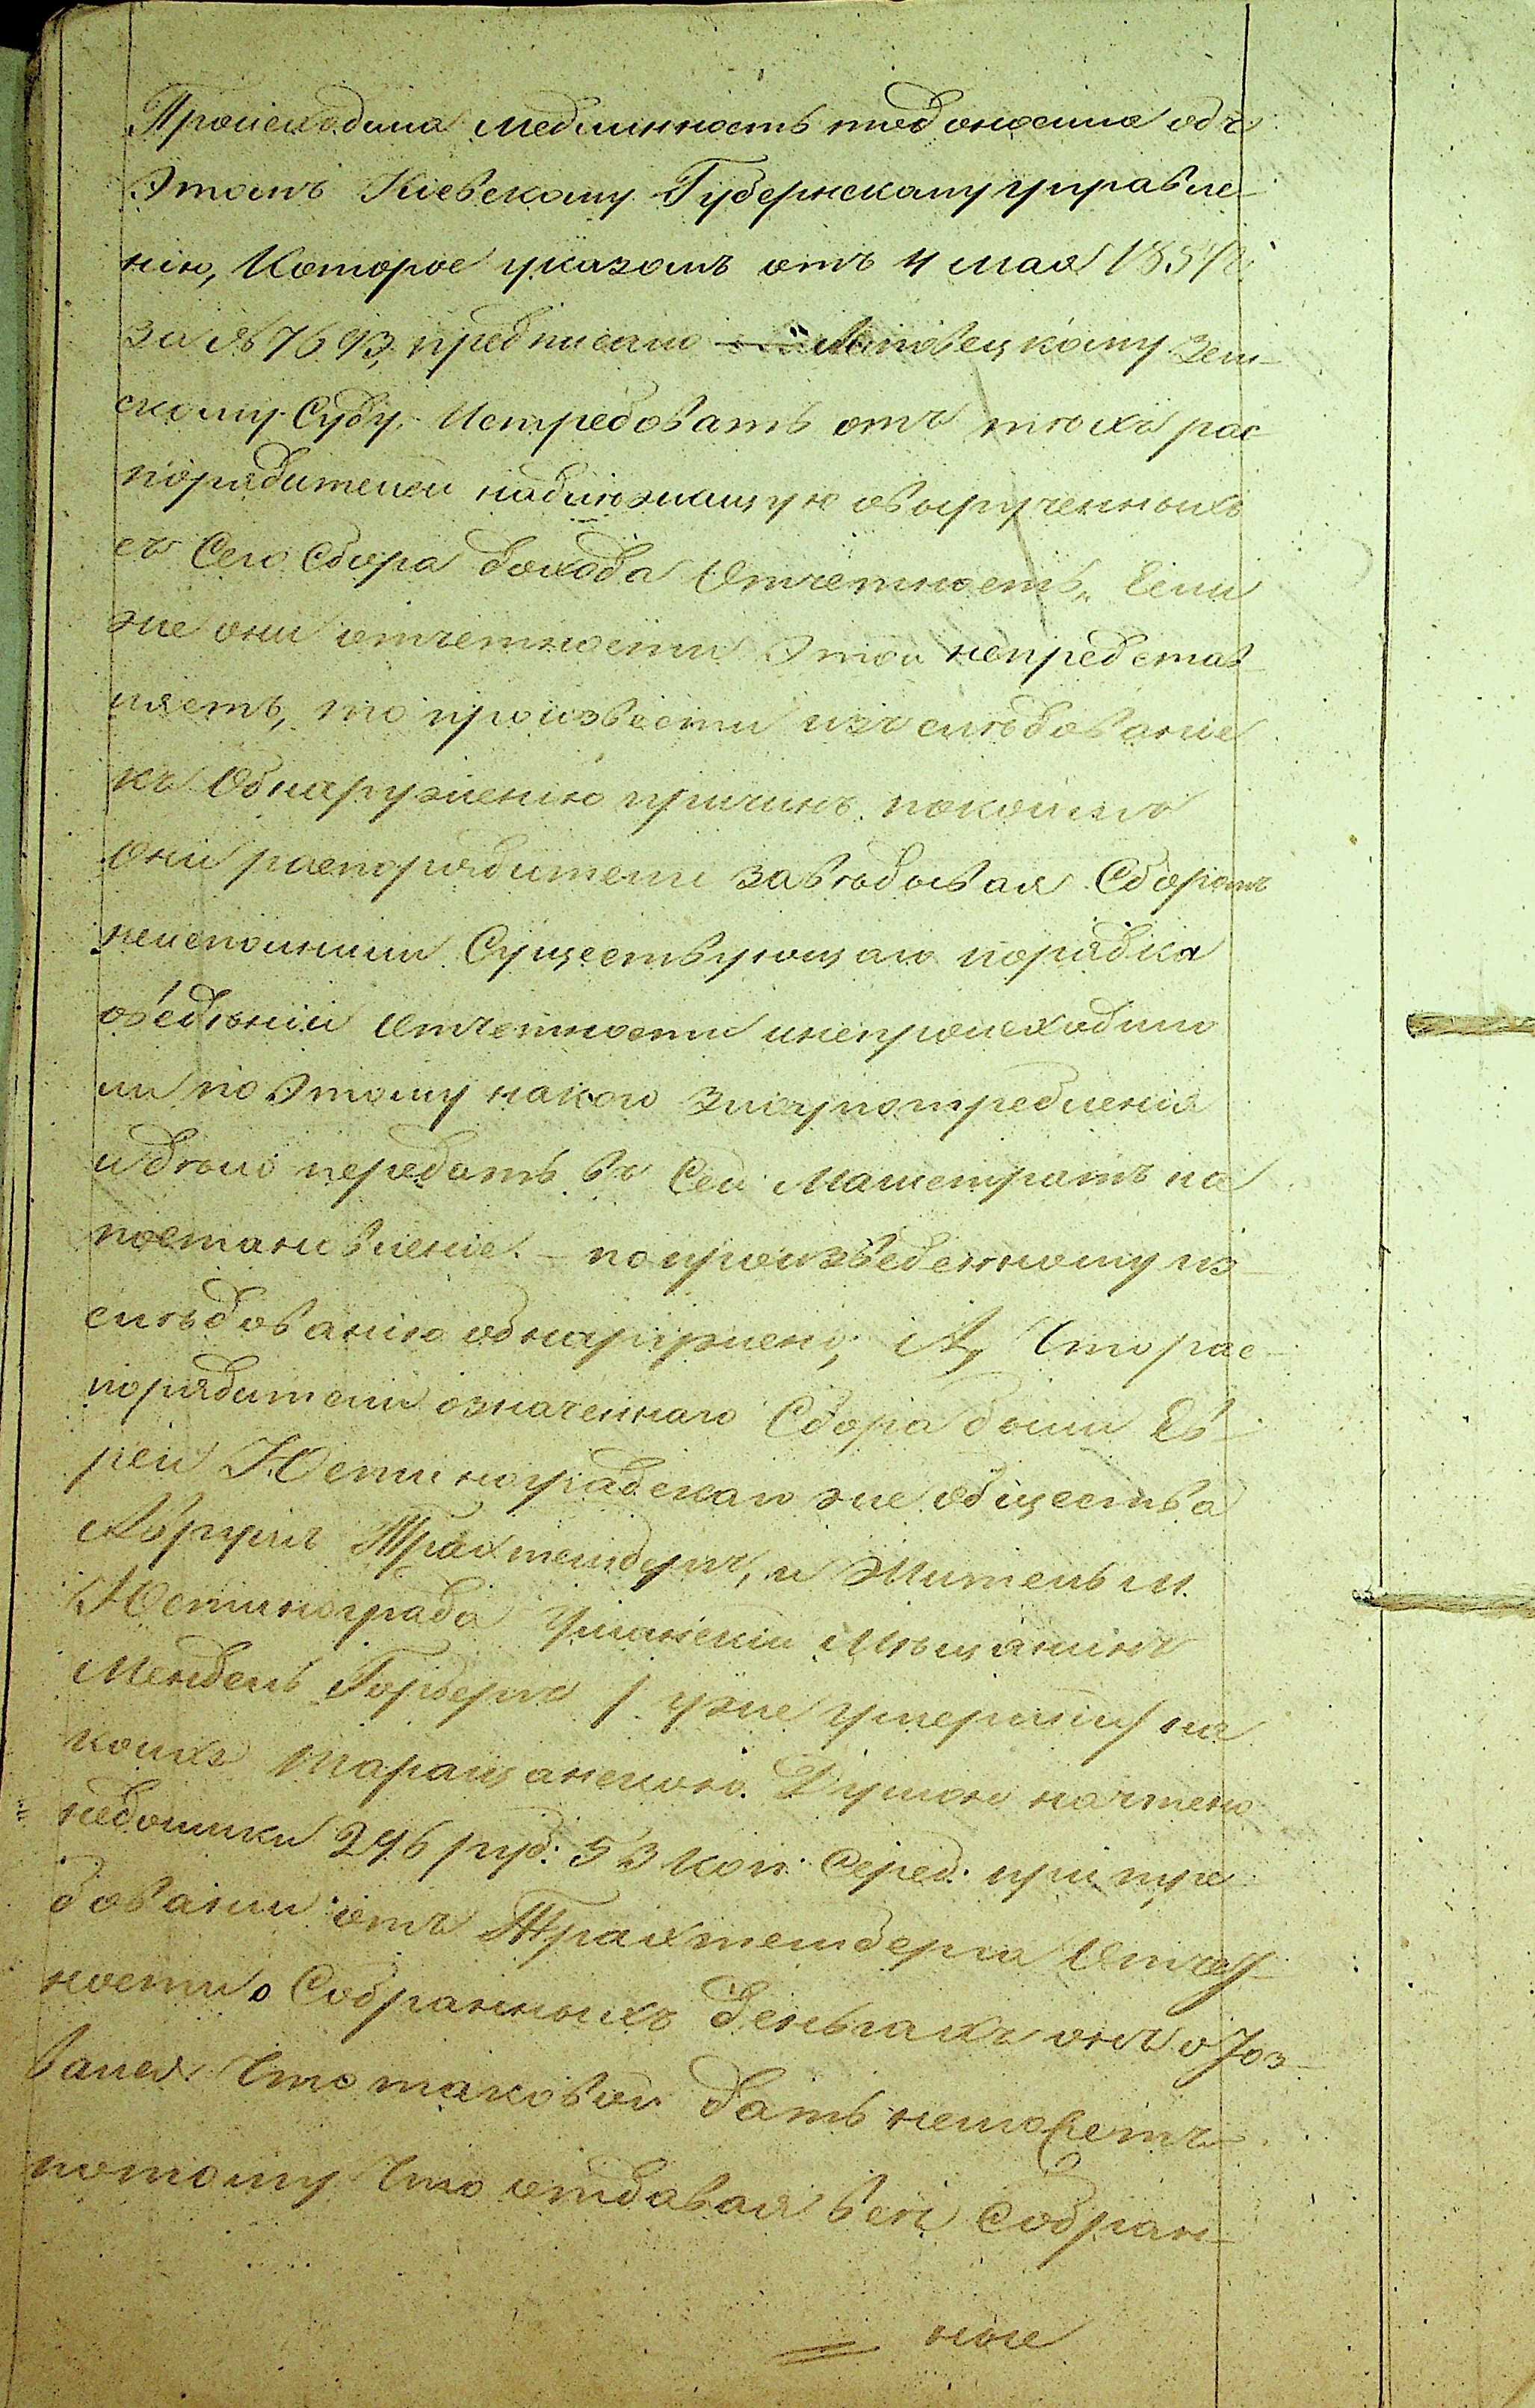 Происходила медленность то доносила объ
Этомъ Кіевскому Губернскому управле-
нію, Которое указомъ отъ 4 мая 1857 г.
за № 7693, предписало Липовецкому Зем-
скому Суду, Истребовать отъ тѣхъ рас
порядителей надлежащую овырученныхъ
съ Сего Сбора дохода Отчетность, Если
же они отчетности Этой непредстав
ляетъ, то произвести изъ слѣдованіе
къ Обнаруженію причинъ покоимъ
Они распорядители завѣдывая Сборомъ
неисполнили Существующаго порядка
овѣденіи Отчетности инепроисходило
ли по Этому какого Злоупотребленія
и дѣло передать въ Сей Магистратъ на
постановленіе. – попроизведенному из-
слѣдованію обнаружено, А, Что рас-
порядители означеннаго Сбора были Ев-
реи Юстинградскаго же общества
Аврумъ Трахтенбергъ, и Житель м.
Юстинограда Уманскій Мѣщанинъ
Мендель Горбергъ / уже умершій/ на
коихъ Таращанскою Думою начтено
недоимки 296 руб. 53 коп. Сереб. при тре
бованіи отъ Трахтенберга Отчет-
ности о Собранныхъ Деньгахъ онъ отоз-
вался Что таковой дать неможетъ
потому Что отдавая всѣ Собран-
ные